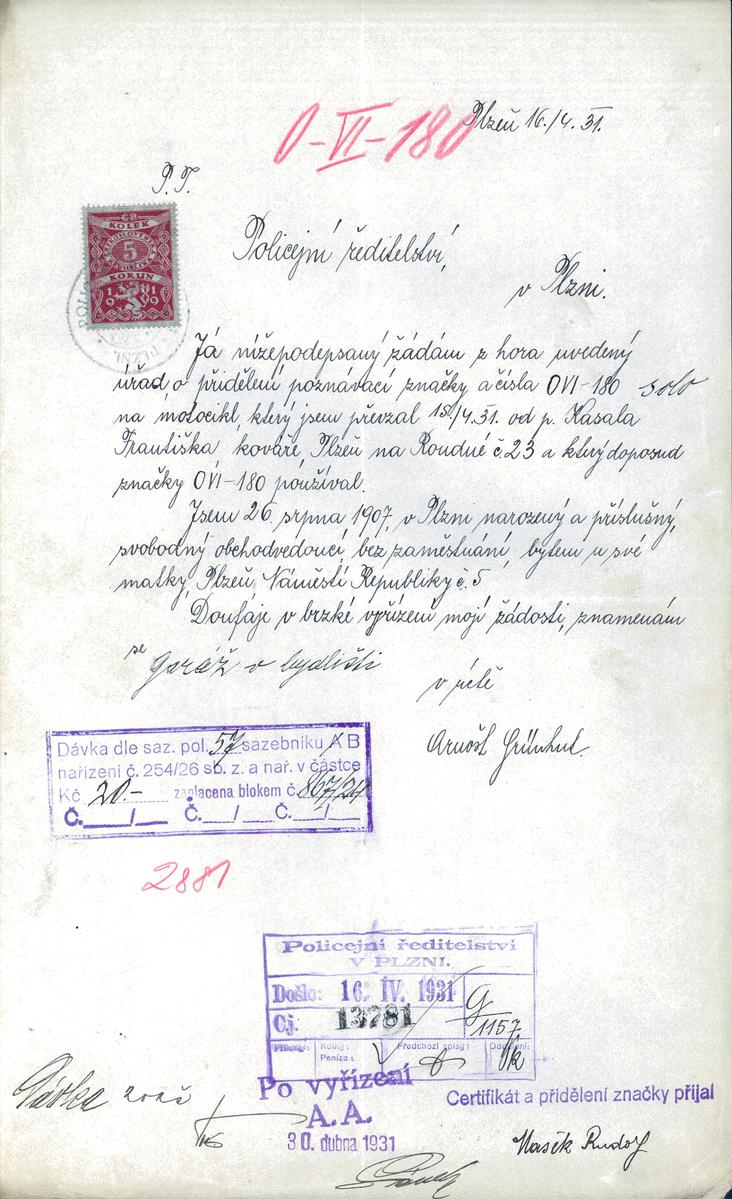 O-VI-180
Plzeň 16./4. 31.
P. T.
ČR
KOLEK
5
KORUN
1919
PLZNI
Policejní ředitelství,
v Plzni.
Já nížepodepsaný žádám z hora uvedený
úřad o přidělení poznávací značky a čísla OVI-180 solo
na motocikl, který jsem převzal 15./4. 31. od p. Kasala
Františka kováře, Plzeň na Roudné č. 23 a který doposud
značky OVI-180 používal.
Jsem 26. srpna 1907, v Plzni narozený a příslušný,
svobodný obchodvedoucí, bez zaměstnání, bytem u své
matky, Plzeň Náměstí Republiky č. 5
Doufaje v brzké vyřízení mojí žádosti, znamenám
se
garáž v bydlišti
v úctě
Arnošt Grünhut.
Dávka dle saz. pol. 57 sazebníku A B
nařízení č. 254/26 sb. z. a nař. v částce
Kč 20.- zaplacena blokem č. 867/24
Č.___/__ Č.___/__ Č.___/__
2881
Policejní ředitelství
V PLZNI.
Došlo: 16. IV. 1931
Čj. 13781
9/1157
Přílohy: Kolky: Peníze: Předchozí spisy: Oddělení:
Po vyřízení
A.A.
30. dubna 1931
Certifikát a přidělení značky přijal
Mašek Rudolf